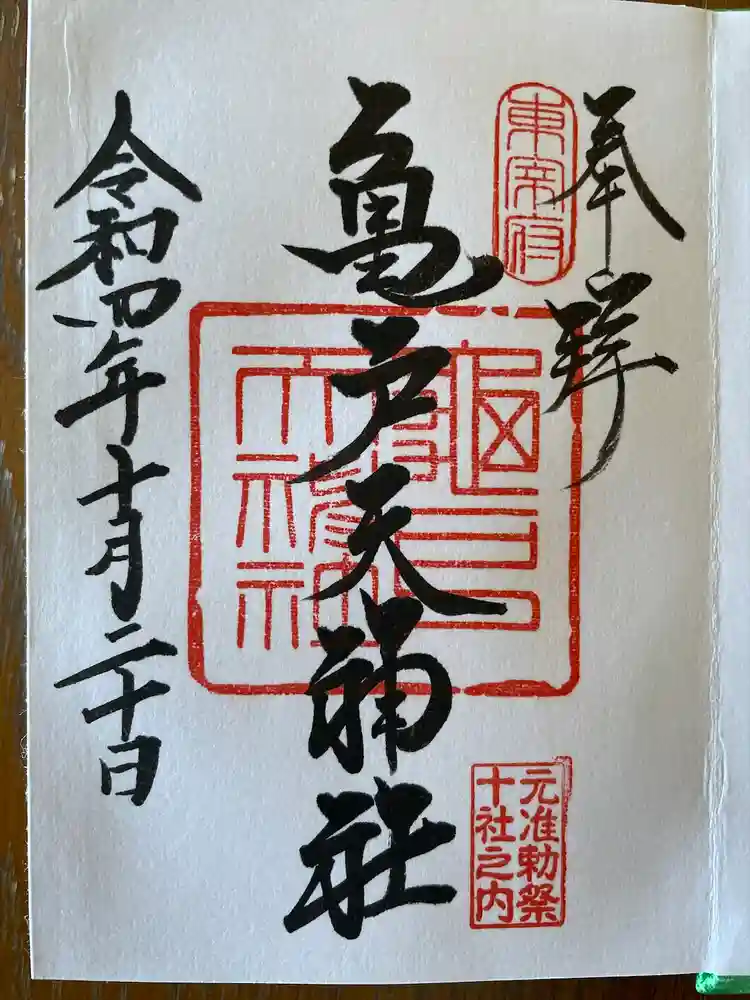 奉拝
東宰府
亀戸天神社
元准勅祭
十社之内
令和四年十月二十日